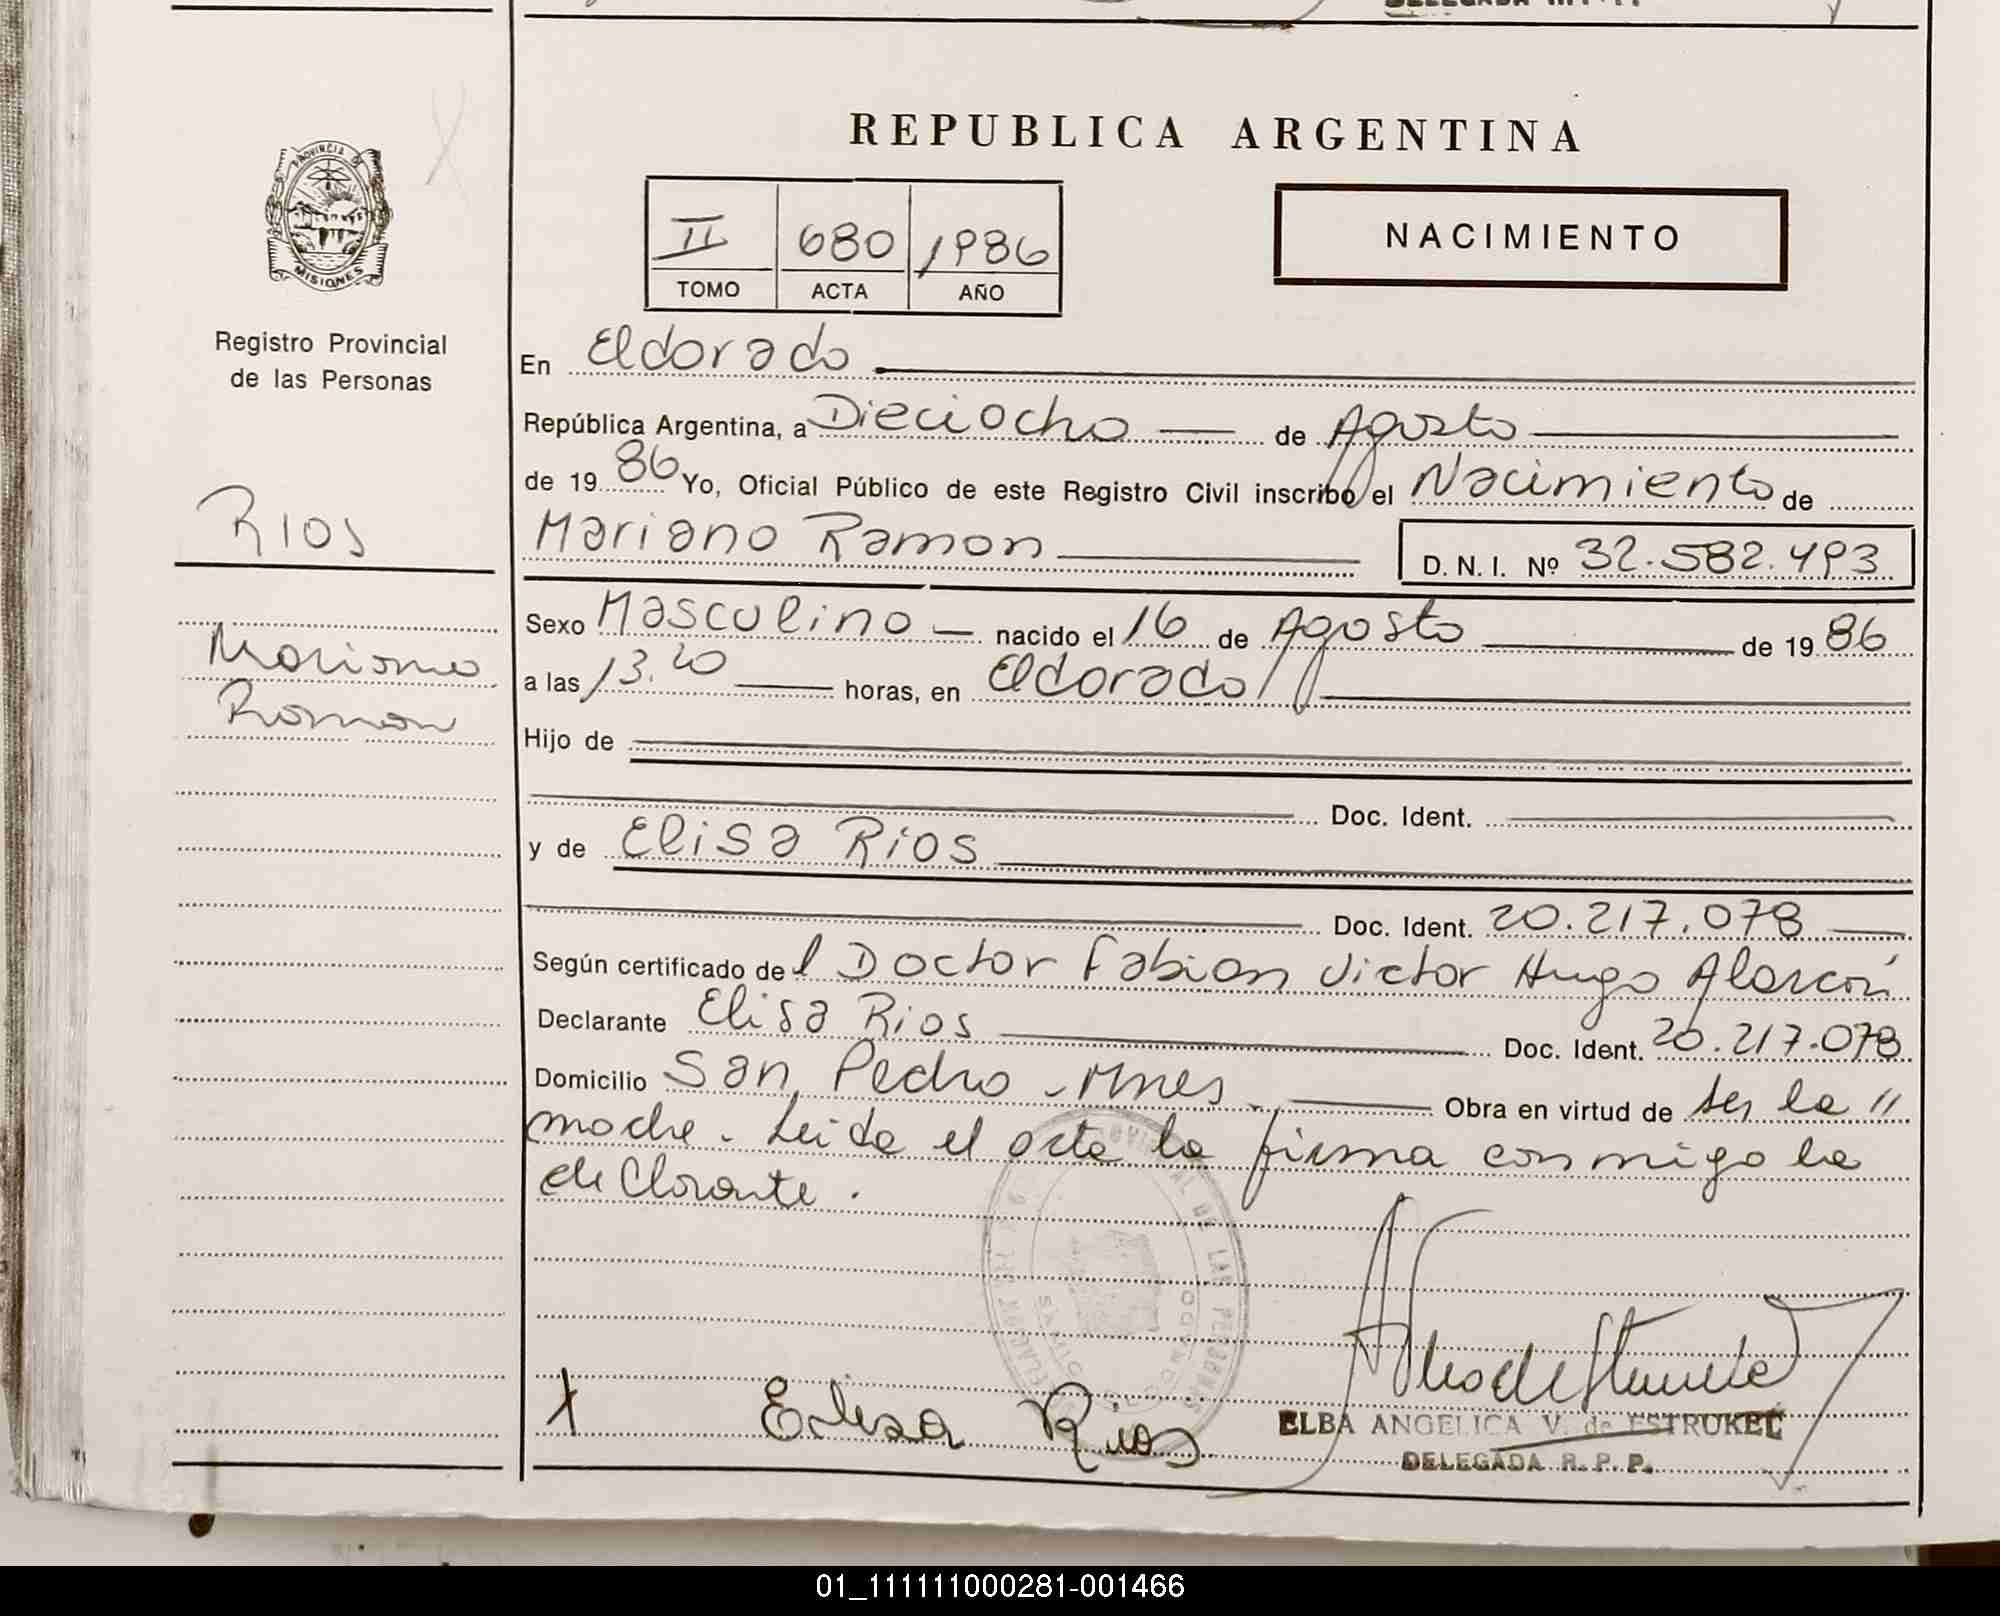 REPUBLICA ARGENTINA
PROVINCIA DE
MISIONES
Registro Provincial
de las Personas
II 680 1986
TOMO ACTA AÑO
NACIMIENTO
En Eldorado
República Argentina, a Dieciocho de Agosto
de 1986 Yo, Oficial Público de este Registro Civil inscribo el Nacimiento de
Mariano Ramon D. N. I. Nº 32.582.493
RIOS
Mariano
Ramon
Sexo Masculino nacido el 16 de Agosto de 1986
a las 13.20 horas, en Eldorado
Hijo de
Doc. Ident.
y de Elisa Rios
Doc. Ident. 20.217.078
Según certificado del Doctor Fabian Victor Hugo Alarcón
Declarante Elisa Rios Doc. Ident. 20.217.078
Domicilio San Pedro - Mnes Obra en virtud de ser la "
madre. Leida el acta la firma conmigo la
declarante.
X Elisa Rios
ELBA ANGELICA V. de ESTRUKEL
DELEGADA R. P. P.
01_111111000281-001466